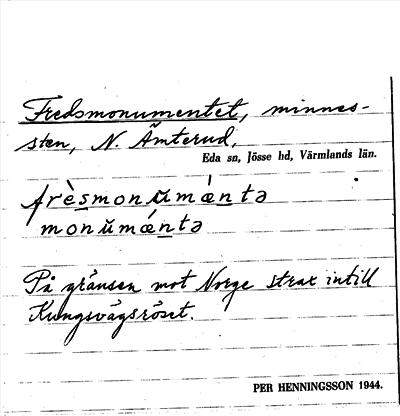 Fredsmonumentet, minnes-
sten, N. Ämterud,
Eda sn, Jösse hd, Värmlands län.
frèsmonŭmántə
monŭmántə
På gränsen mot Norge strax intill
Kungsvägsröset.
PER HENNINGSSON 1944.